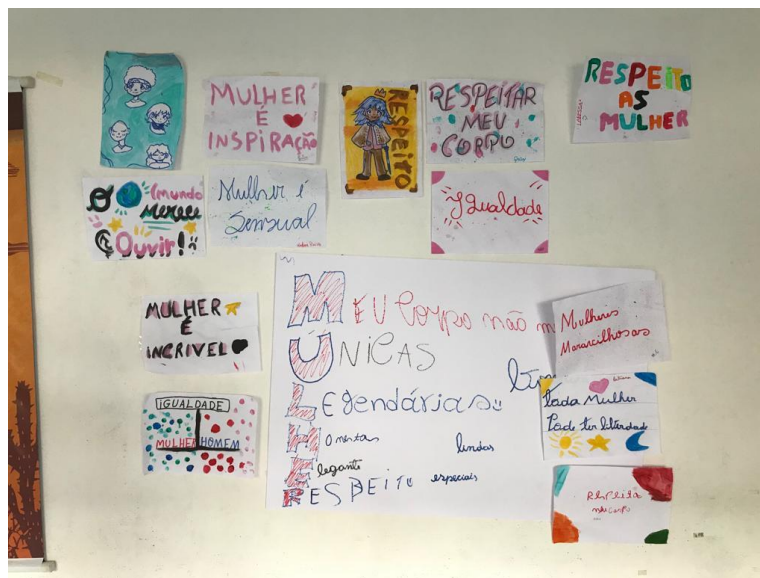 MULHER
É
INSPIRAÇÃO
RESPEITO
RESPEITAR
MEU
CORPO
RESPEITO
AS
MULHER
O mundo
Merece
Ouvir!
Mulher é
Sensual
Igualdade
MULHER
É
INCRIVEL
IGUALDADE
MULHER HOMEM
MEU Corpo não
ÚNICAS
LEgendárias
lindas
Elegante
RESPEITO especiais
Mulheres
Maravilhosas
Toda Mulher
Pode ter liberdade
Respeita
meu corpo